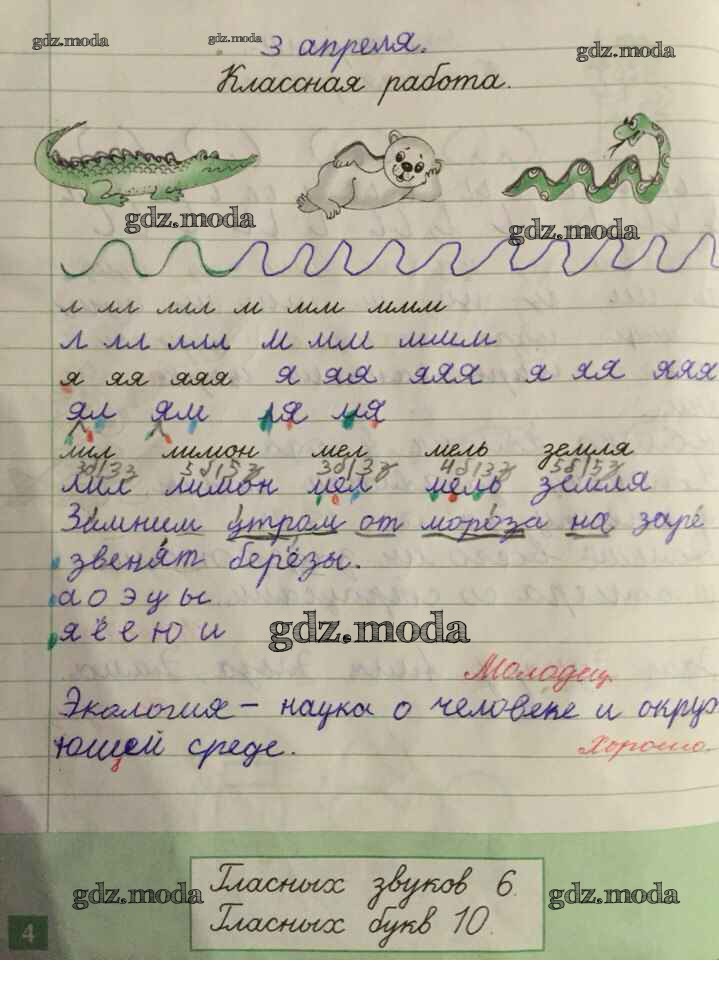 gdz.moda gdz.moda gdz.moda
3 апреля.
Классная работа.
gdz.moda gdz.moda
л лл ллл м мм ммм
л лл ллл м мм ммм
я яя яяя я яя яяя я яя яяя
ял ям ля мя
лил лимон мел мель земля
3б/3з 5б/5з 3б/3з 4б/3з 5б/5з
лил лимон мел мель земля
Зимним утром от мороза на заре
звенят берёзы.
а о э у ы
я ё е ю и
gdz.moda
Молодец
Экология – наука о человеке и окру
ющей среде.
Хорошо.
Гласных звуков 6.
Гласных букв 10.
gdz.moda gdz.moda
4